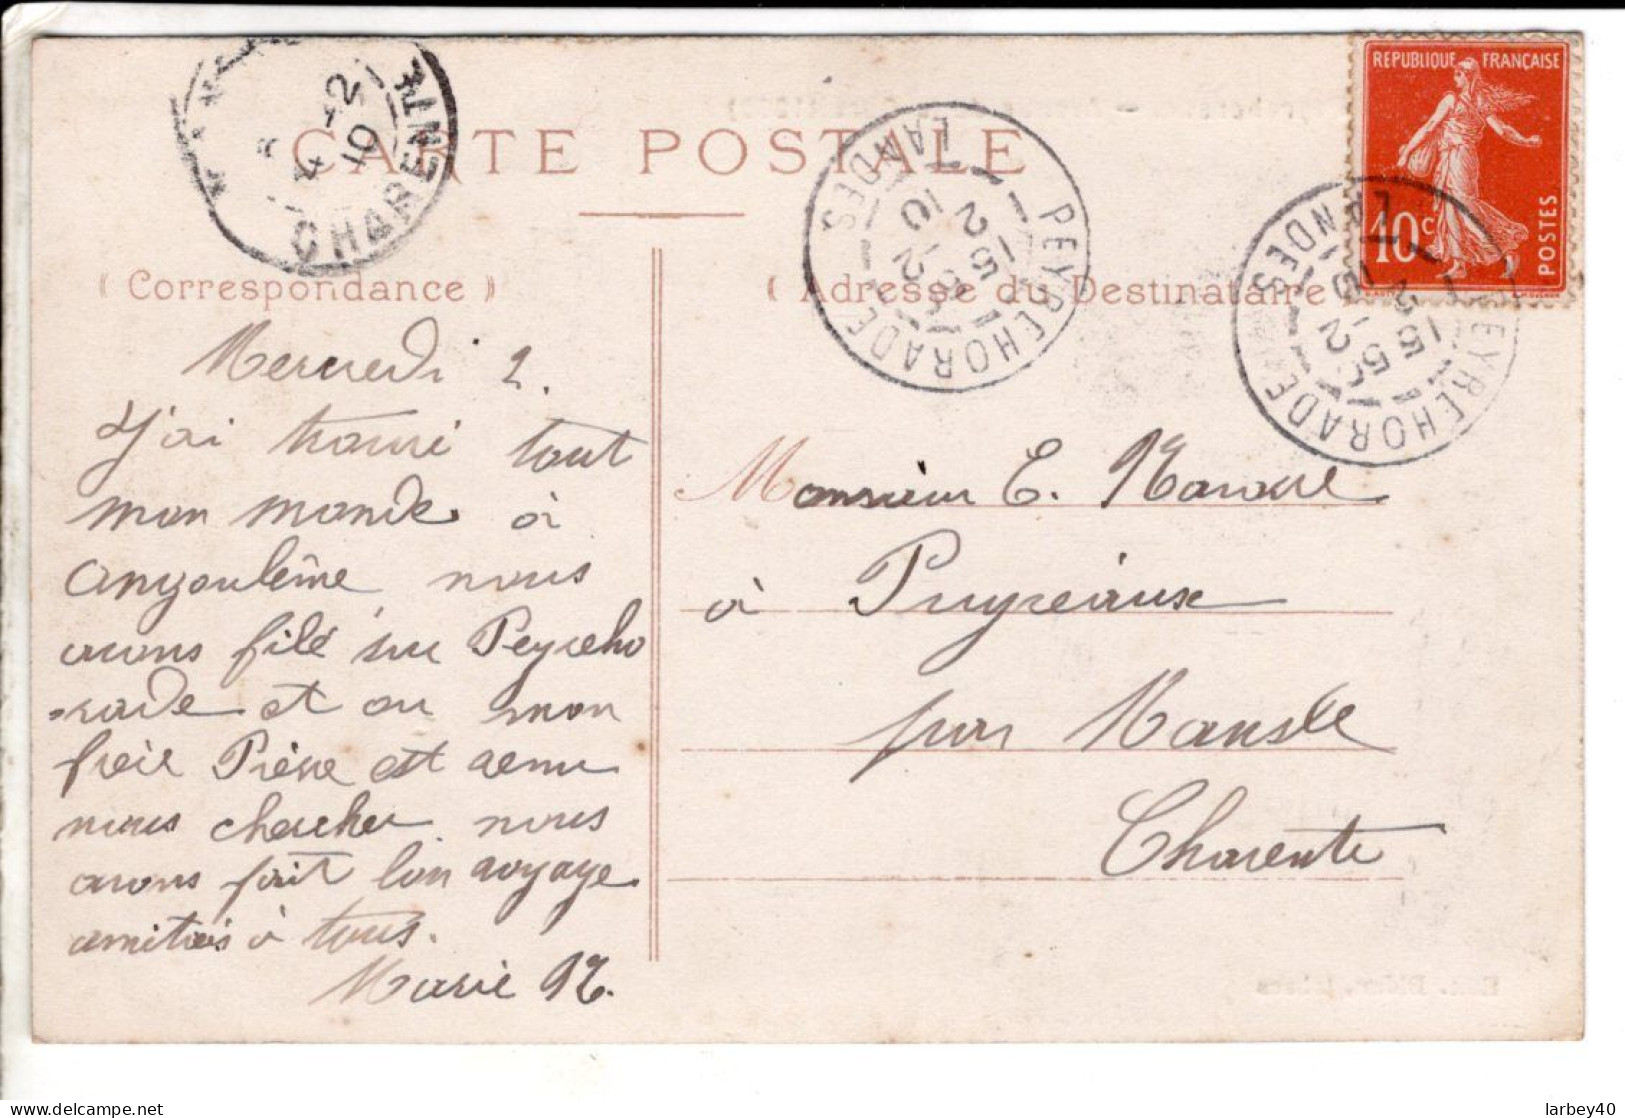 CARTE POSTALE
( Correspondance )
( Adresse du Destinataire
REPUBLIQUE FRANÇAISE
10c
POSTES
PEYREHORADE
LANDES
15 50
2 -2
10
PEYREHORADE
LANDES
15 50
2 -2
CHARENTE
4 -2
10
Mercredi 2.
J'ai trouvé tout
mon monde à
angoulême nous
avons filé sur Peyreho
-rade et ou mon
frère Pierre est venu
nous chercher nous
avons fait bon voyage
amitiés à tous.
Marie N.
Monsieur E.
à Puyréaux
par Mansle
Charente
larbey40